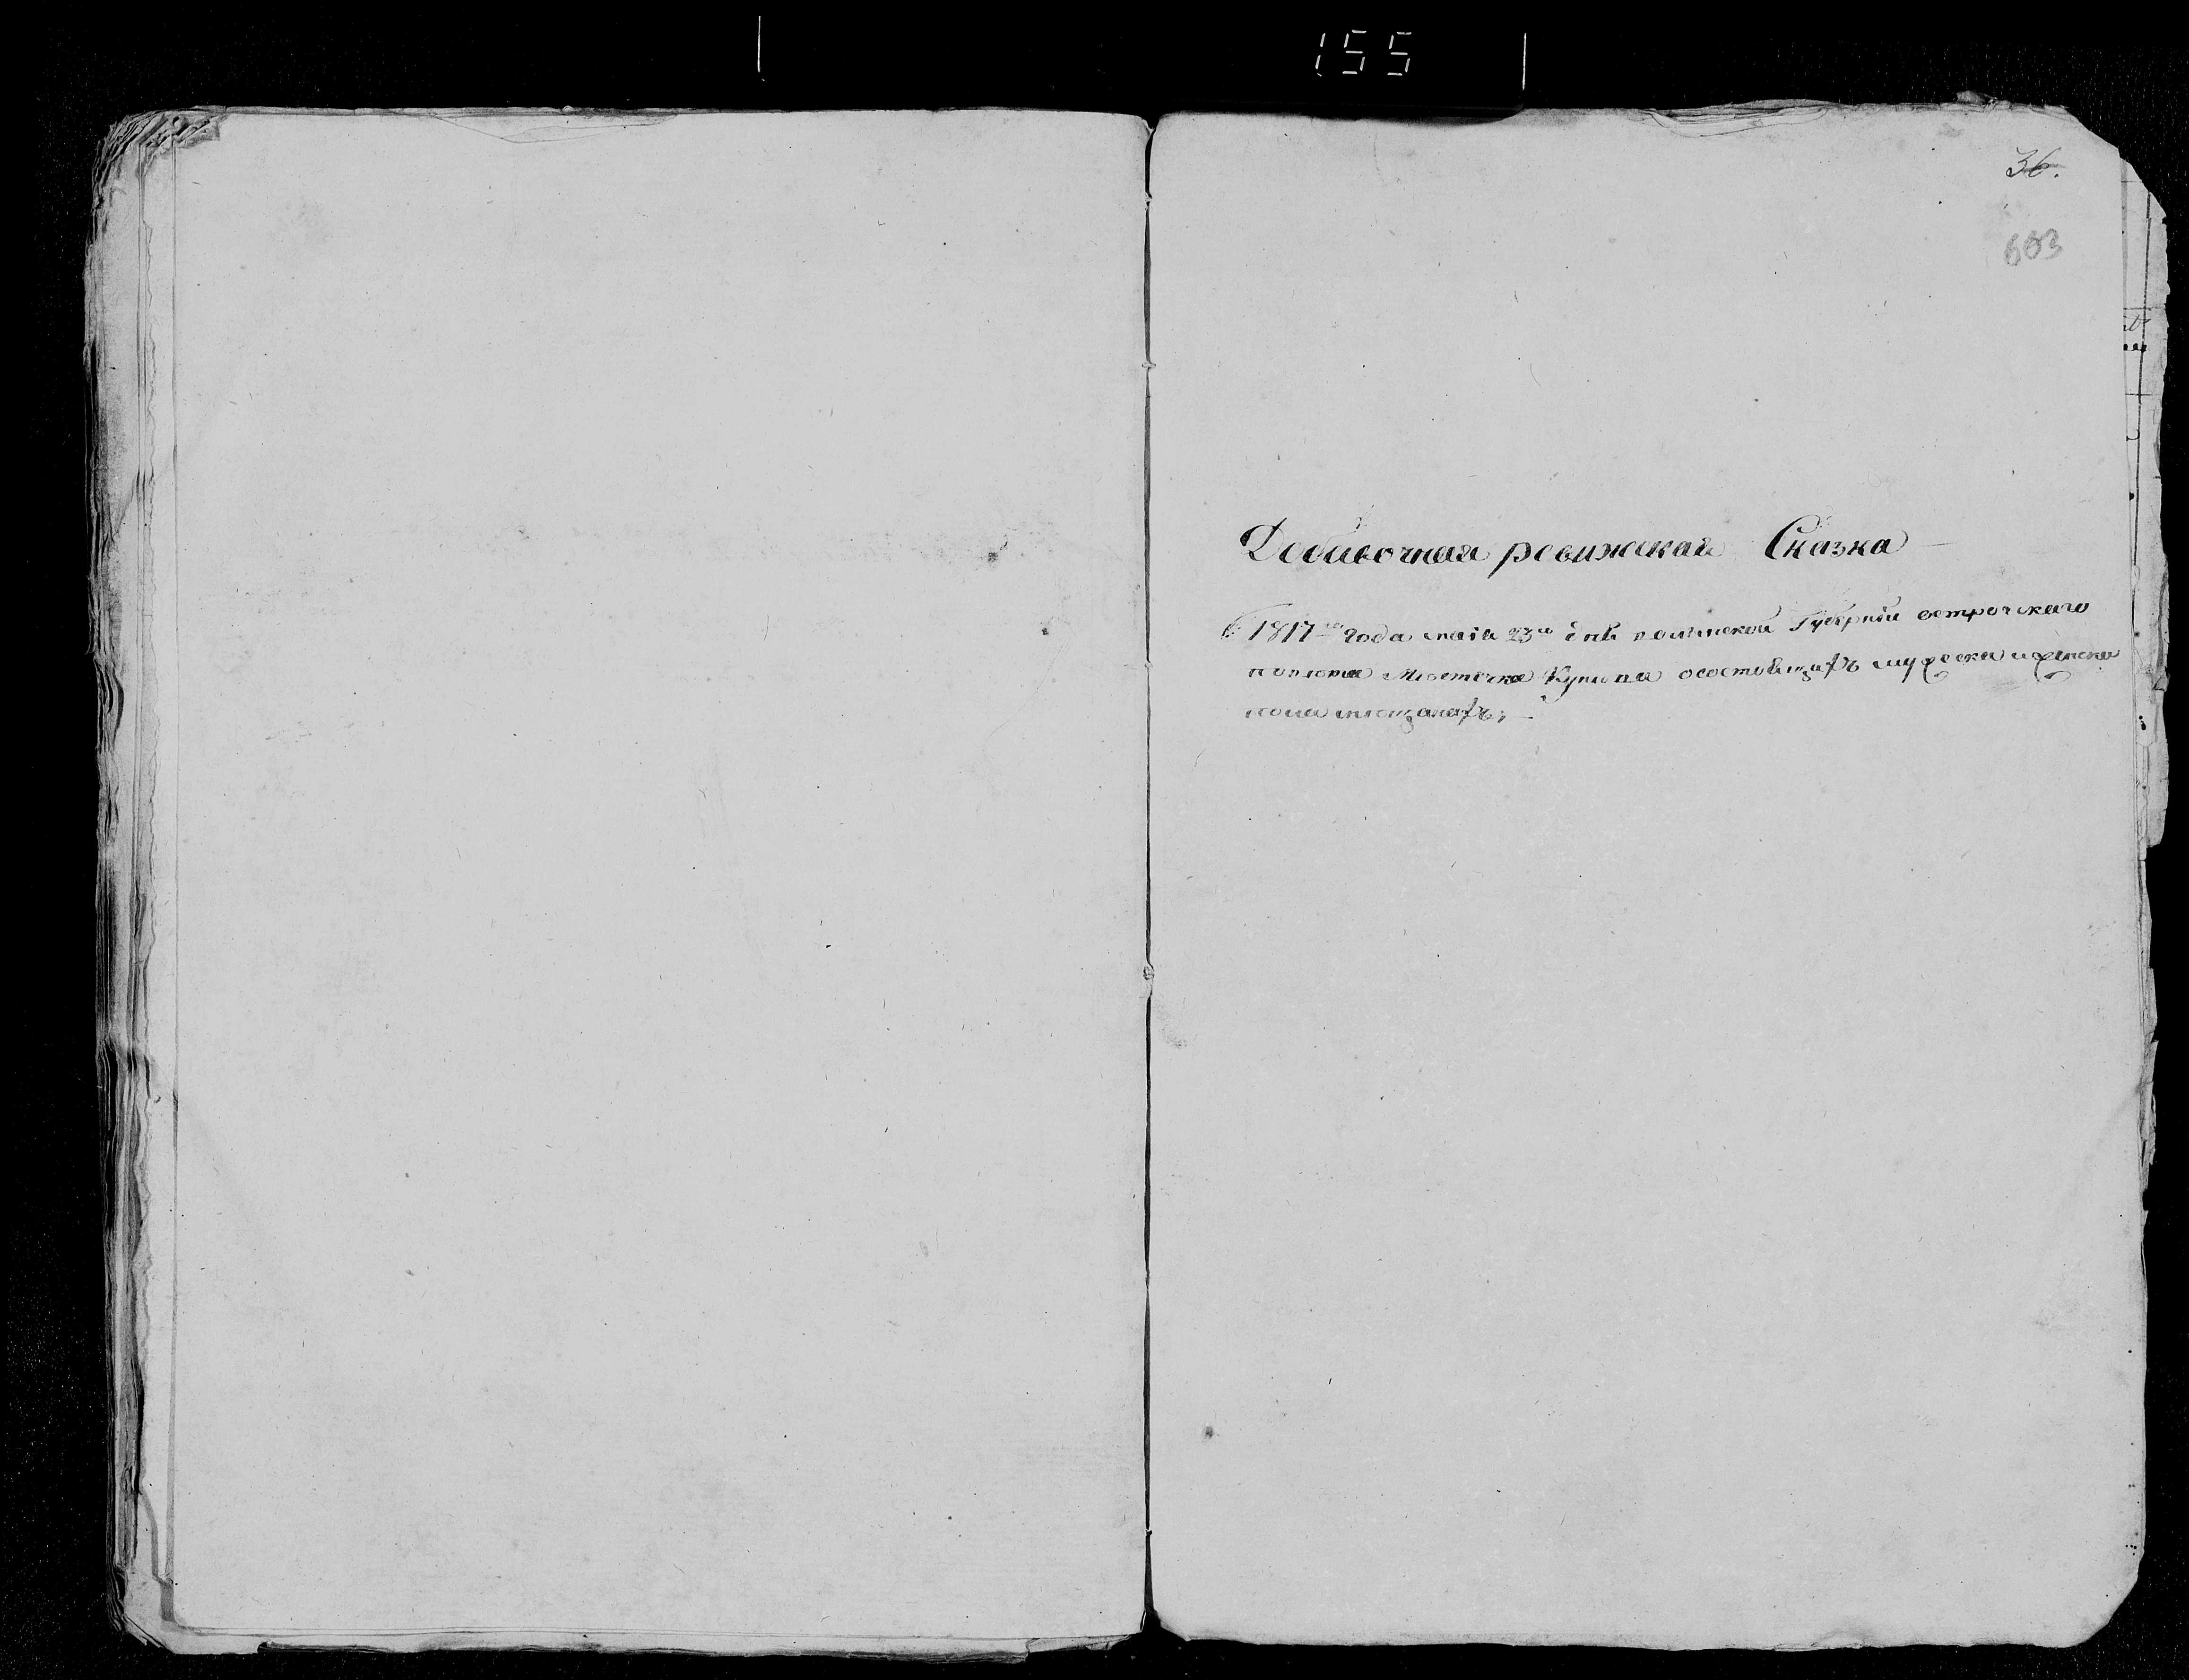 155
36.
603
Добавочная ревижская Сказка
1817го года маія 23го днѣ волынской Губерніи острожскаго
повѣта Мѣстечка Купила о состоящихъ мужеска и женска
пола мещанахъ;